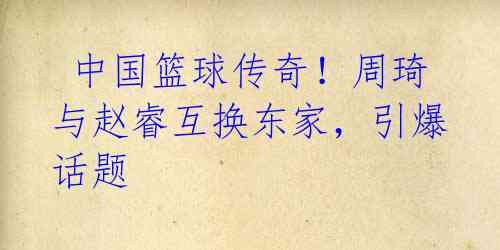 中国篮球传奇！周琦
与赵睿互换东家，引爆
话题